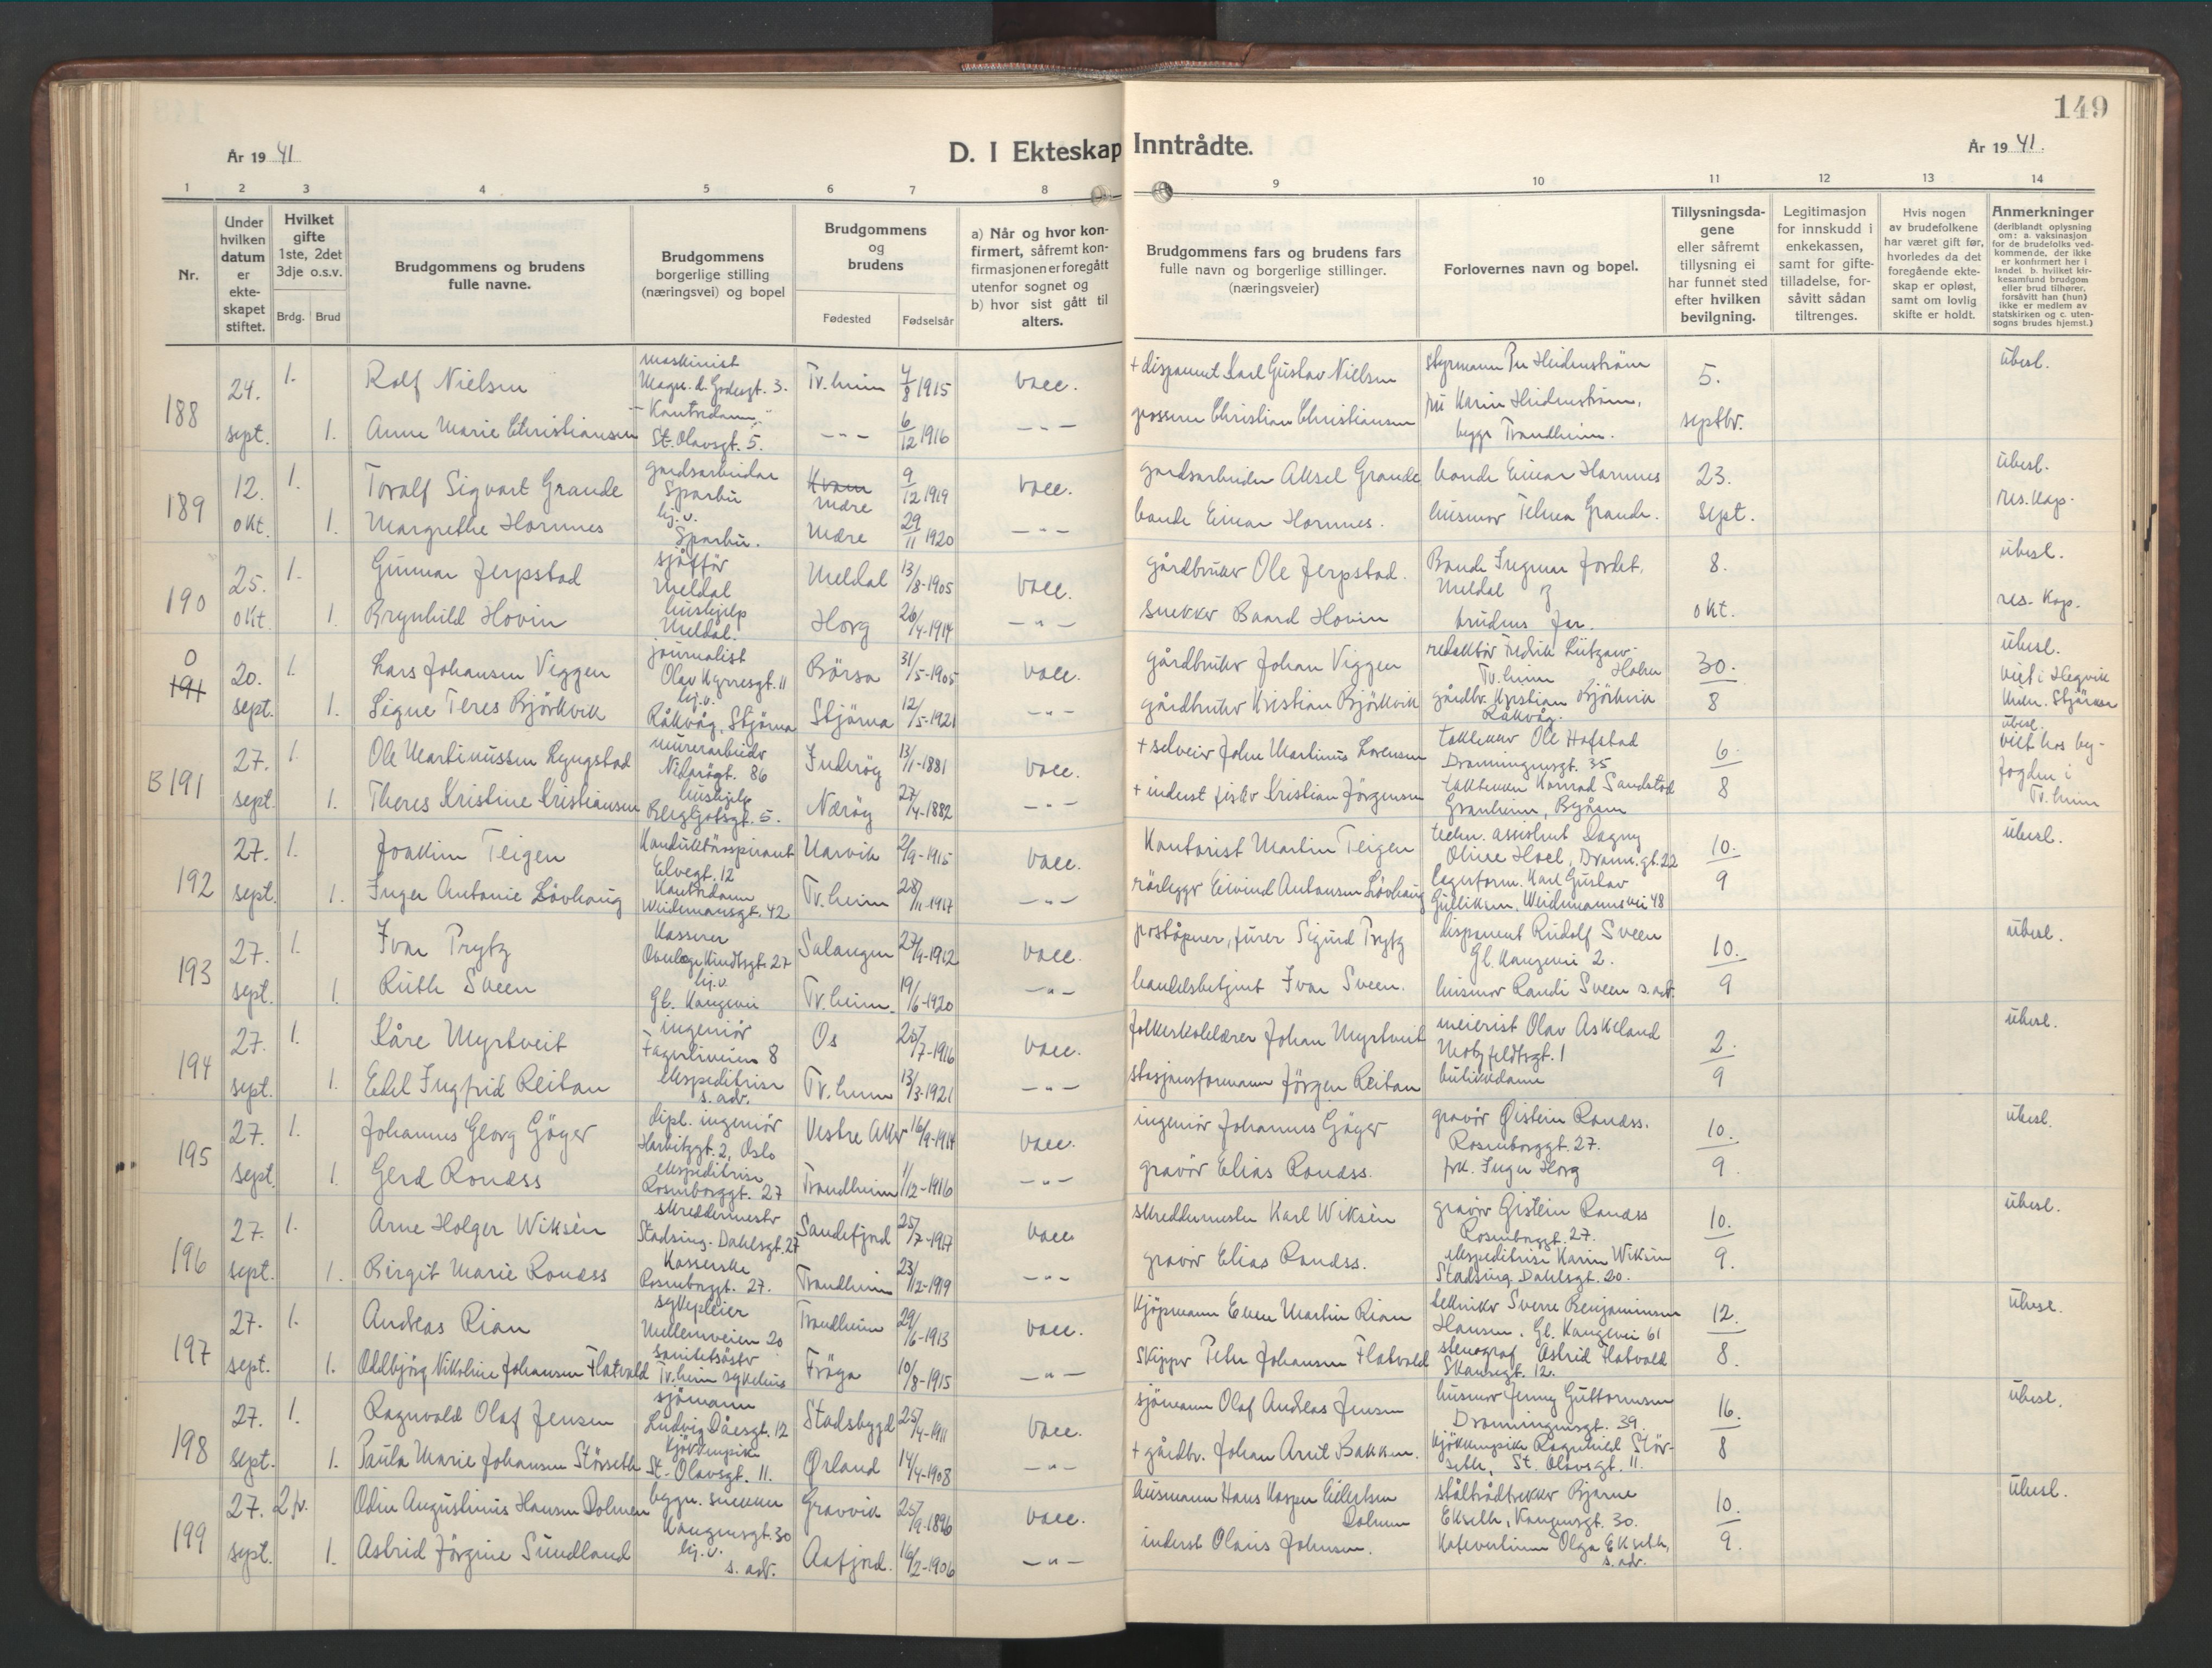 149
År 1941
D. I Ekteskap Inntrådte.
År 1941.
1 2 3 4 5 6 7 8 9 10 11 12 13 14
Nr.
Under hvilken datum er ekteskapet stiftet.
Hvilket gifte 1ste, 2det 3dje o.s.v.
Brdg. Brud
Brudgommens og brudens fulle navne.
Brudgommens borgerlige stilling (næringsvei) og bopel
Brudgommens og brudens
Fødested
Fødselsår
a) Når og hvor konfirmert, såfremt konfirmasjonen er foregått utenfor sognet og b) hvor sist gått til alters.
Brudgommens fars og brudens fars fulle navn og borgerlige stillinger. (næringsveier)
Forlovernes navn og bopel.
Tillysningsdagene eller såfremt tillysning ei har funnet sted efter hvilken bevilgning.
Legitimasjon for innskudd i enkekassen, samt for giftetilladelse, forsåvitt sådan tiltrenges.
Hvis nogen av brudefolkene har været gift før, hvorledes da det foregående ekteskap er opløst, samt om lovlig skifte er holdt.
Anmerkninger (deriblandt oplysning om: a. vaksinasjon for de brudefolks vedkommende, der ikke er konfirmert her i landet b. hvilket kirkesamfund brudgom eller brud tilhører, forsåvitt han (hun) ikke er medlem av statskirken og c. utensogns brudes hjemst.)
188 24. sept. 1. Rolf Nielsen maskinist Magn. d. Godesgt. 3. Tr.heim 4/8 1915 vacc. + disponent Karl Gustav Nielsen styrmann Per Heidenstrøm 5. septbr. ubesl.
1. Anne Marie Christiansen Kontordame St. Olavsgt. 5. -"- 6/12 1916 -"- Christian Christiansen fru Karin Heidenstrøm, begge Trondheim.
189 12. okt. 1. Toralf Sigvart Grande gårdsarbeider Sparbu Kvam Mære 9/12 1919 vacc. gårdsarbeider Aksel Grande bonde Einar Hornnes 23. sept. ubesl. res. kap.
1. Margrethe Hornnes hj.v. Sparbu. Mære 29/11 1920 -"- bonde Einar Hornnes. husmor Telma Grande.
190 25. okt. 1. Gunnar Jerpstad sjåffør Meldal Meldal 13/8-1905 vacc. gårdbruker Ole Jerpstad. Bonde Ingmar Jordet, Meldal og 8. okt. ubesl. res. kap.
1. Brynhild Hovin hushjelp Meldal. Horg 26/4-1914 -"- snekker Baard Hovin brudens far.
0 191 20. sept. 1. Lars Johansen Viggen journalist Olav Kyrresgt. 11 Börsa 31/5-1905 vacc. gårdbruker Johan Viggen redaktør Fredrik Lützow-Holm Tr.heim 30. 8 ubesl. viet i Hegvik
1. Signe Teres Björkvik hj.v. Råkvåg, Stjörna Stjörna 12/5-1921 -"- gårdbruker Kristian Björkvik gårdbr. Kristian Björkvik Råkvåg.
B 191 27. sept. 1. Ole Martinussen Ryngstad murerarbeider Nidarögt. 86 Inderöy 13/1-1881 vacc. + selveier John Martinus Lorensen taktekker Ole Hofstad Dronningensgt. 35 6. 8 ubesl. viet hos byfogden i Tr.heim
1. Theres Kristine Kristiansen hushjelp Bergljotsgt. 5. Nærøy 27/4-1882 -"- + inderst fisker Kristian Jörgensen taktekker Konrad Sandstad Granheim, Byåsen
192 27. sept. 1. Joakim Teigen Konduktöraspirant Elvegt. 12 Narvik 2/9-1915 vacc. Kontorist Martin Teigen techn. assistent Dagny Oline Hoel, Dronn.gt. 22 10. 9 ubesl.
1. Inger Antonie Lövhaug Kontordame Weidemansgt. 42 Tr.heim 28/11-1917 -"- rörlegger Eivind Antonsen Lövhaug lagerform. Karl Gustav Gulliksen, Weidemannsvei 48
193 27. sept. 1. Ivar Prytz Kasserer Overlege Kindtsgt. 27 Salangen 27/9-1912 vacc. poståpner, furer Sigurd Prytz disponent Rudolf Sveen Gl. Kongevei 2. 10. 9 ubesl.
1. Ruth Sveen hj.v. Gl. Kongevei Tr.heim. 19/6-1920 -"- handelsbetjent Ivar Sveen. husmor Randi Sveen s. adr.
194 27. sept. 1. Kåre Myrtveit ingeniör Fagerliveien 8 Os 25/7-1916 vacc. folkeskolelærer Johan Myrtveit meierist Olav Askeland Motzfeldtsgt. 1 2. 9 ubesl.
1. Edel Ingfrid Reitan ekspeditrise s. adr. Tr.heim 13/3-1921 -"- stasjonsformann Jörgen Reitan butikkdame
195 27. sept. 1. Johannes Georg Göger dipl. ingeniör Harbitzgt. 2, Oslo Vestre Aker 16/9-1914 vacc. ingeniör Johannes Göger gravör Øistein Ronæss. Rosenborggt. 27. 10. 9. ubesl.
1. Gerd Ronæss ekspeditrise Rosenborggt. 27 Trondheim 1/12-1916 -"- gravör Elias Ronæss. frk. Inger Horg
196 27. sept. 1. Arne Holger Wiksèn skreddermester Stadsing. Dahlsgt. 27 Sandefjord 25/7-1917 vacc. skreddermester Karl Wiksèn gravör Øistein Ronæss Rosenborggt. 27. 10. 9. ubesl.
1. Birgit Marie Ronæss Kasserske Rosenborggt. 27. Trondheim 23/12-1919 -"- gravör Elias Ronæss. ekspeditrise Karin Wiksèn Stadsing. Dahlsgt. 20.
197 27. sept. 1. Andreas Rian sykepleier Mellemveien 20 Trondheim 29/6-1913 vacc. Kjöpmann Even Martin Rian tekniker Sverre Benjaminsen Hansen, Gl. Kongevei 61 12. 8. ubesl.
1. Oddbjörg Nikoline Johansen Flatvold sanitetsöster Tr.heim sykehus Fröya 10/8-1915 -"- Skipper Peter Johansen Flatvold stenograf Astrid Flatvold Skansegt. 12.
198 27. sept. 1. Ragnvald Olaf Jensen sjömann Ludvig Dåesgt. 12 Stadsbygd 25/4-1911 vacc. sjömann Olaf Andreas Jensen husmor Jenny Guttormsen Dronningensgt. 39. 16. 8 ubesl.
1. Paula Marie Johansen Störseth kjökkenpike St. Olavsgt. 11. Ørland 14/4-1908 -"- + gårdbr. Johan Arnt Bakken. kjökkenpike Ragnhild Störseth, St. Olavsgt. 11.
199 27. sept. 2 fr. Odin Augustinus Hansen Dolmen bygn. snekker Kongensgt. 30 Gravvik 25/9-1896 vacc. husmann Hans Kasper Eilertsen Dolmen ståltrådtrekker Bjarne Ekseth, Kongensgt. 30. 10. 9. ubesl.
1. Astrid Jörgine Sundland hj.v. s. adr. Aafjord. 16/2-1906 -"- inderst Olaus Johnsen. Kafevertinne Olga Ekseth, s. adr.